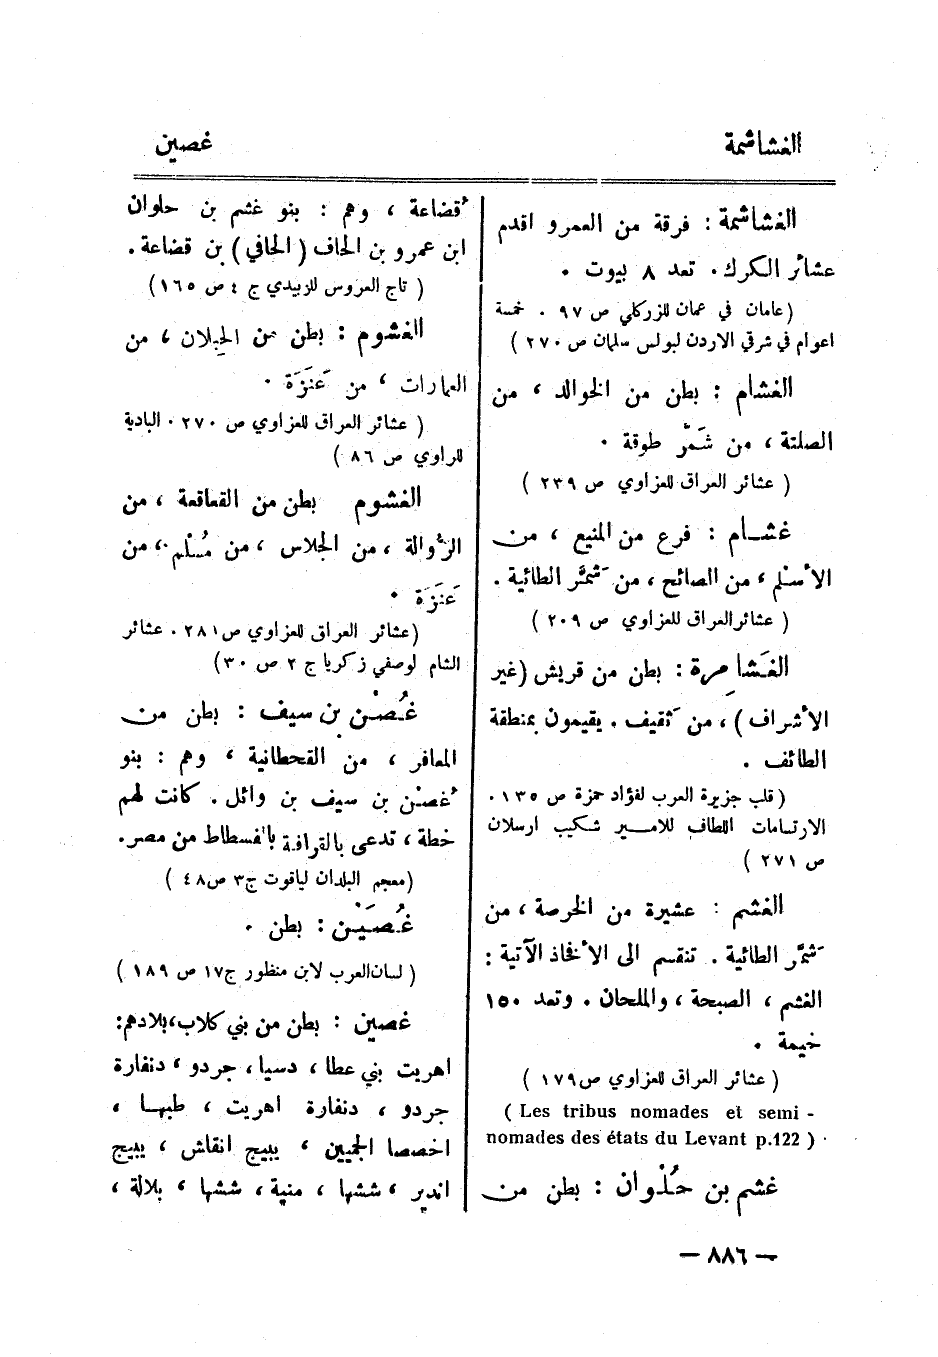 الغشاشمة
غصين
الغشاشمة : فرقة من العمرو اقدم
عشائر الكرك . تعد ٨ بيوت .
( عامان في عمان للزركلي ص ٩٧ . خمسة
اعوام في شرقي الاردن لبولس سلمان ص ٢٧٠ )
الغشام : بطن من الخوالد ، من
الصلتة ، من شَمَّر طوقة .
( عشائر العراق للعزاوي ص ٢٣٩ )
غشام : فرع من المنيع ، من
الأسْلم ، من الصائح ، من شمَّر الطائية .
( عشائر العراق للعزاوي ص ٢٠٩ )
الغَشامِرة : بطن من قريش (غير
الأشراف) ، من ثَقيف . يقيمون بمنطقة
الطائف .
( قلب جزيرة العرب لفؤاد حمزة ص ١٣٥ .
الارتسامات اللطاف للامير شكيب ارسلان
ص ٢٧١ )
الغشم : عشيرة من الخرصة ، من
شمَّر الطائية . تنقسم الى الأفخاذ الآتية :
الغشم ، الصبحة ، والملحان . وتعد ١٥٠
خيمة .
( عشائر العراق للعزاوي ص ١٧٩ )
( Les tribus nomades et semi -
nomades des états du Levant p.122 )
غشم بن حُلْوان : بطن من
قُضاعة ، وهم : بنو غشم بن حلوان
ابن عمرو بن الحاف ( الحافي ) بن قضاعة .
( تاج العروس للزبيدي ج ٤ ص ١٦٥ )
الغشوم : بطن من الجبلان ، من
العمارات ، من عَنَزَة .
( عشائر العراق للعزاوي ص ٢٧٠ . البادية
للراوي ص ٨٦ )
الغشوم بطن من القعاقعة ، من
الرُّوالة ، من الجلاس ، من مُسْلم ، من
عَنَزَة .
( عشائر العراق للعزاوي ص ٢٨١ . عشائر
الشام لوصفي زكريا ج ٢ ص ٣٠ )
غُصْن بن سيف : بطن من
المعافر ، من القحطانية ، وهم : بنو
غُصْن بن سيف بن وائل . كانت لهم
خطة ، تدعى بالقرافة بالفسطاط من مصر .
( معجم البلدان لياقوت ج٣ ص ٤٨ )
غُصَيْن : بطن .
( لسان العرب لابن منظور ج ١٧ ص ١٨٩ )
غصين : بطن من بني كلاب ، بلادهم :
اهريت بني عطا ، دسيا ، جردو ، دنفارة
جردو ، دنفارة اهريت ، طبها ،
اخصصا الجميين ، يبيج انقاش ، يبيج
اندير ، ششها ، منية ، ششها ، بلالة ،
— ٨٨٦ —